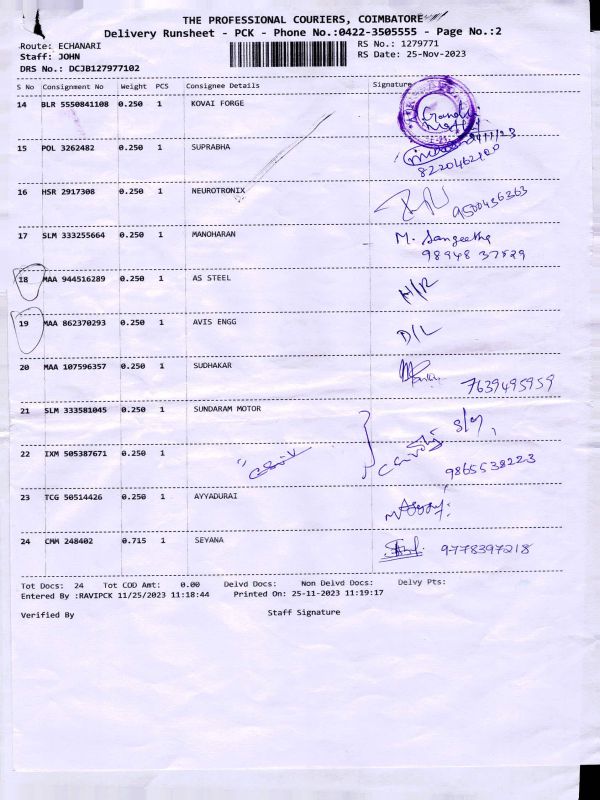 THE PROFESSIONAL COURIERS, COIMBATORE
Delivery Runsheet - PCK - Phone No.:0422-3505555 - Page No.:2
Route: ECHANARI RS No.: 1279771
Staff: JOHN RS Date: 25-Nov-2023
DRS No.: DCJB127977102
S No Consignment No Weight PCS Consignee Details Signature
14 BLR 5550841108 0.250 1 KOVAI FORGE
15 POL 3262482 0.250 1 SUPRABHA
8220462120
16 HSR 2917308 0.250 1 NEUROTRONIX 9500436363
17 SLM 333255664 0.250 1 MANOHARAN M. Sangeetha
98948 37529
18 MAA 944516289 0.250 1 AS STEEL H/R
19 MAA 862370293 0.250 1 AVIS ENGG D/L
20 MAA 107596357 0.250 1 SUDHAKAR 7639495959
21 SLM 333581045 0.250 1 SUNDARAM MOTOR
22 IXM 505387671 0.250 1 9865538223
23 TCG 50514426 0.250 1 AYYADURAI
24 CMM 248402 0.715 1 SEYANA 9778397218
Tot Docs: 24 Tot COD Amt: 0.00 Delvd Docs: Non Delvd Docs: Delvy Pts:
Entered By :RAVIPCK 11/25/2023 11:18:44 Printed On: 25-11-2023 11:19:17
Verified By Staff Signature